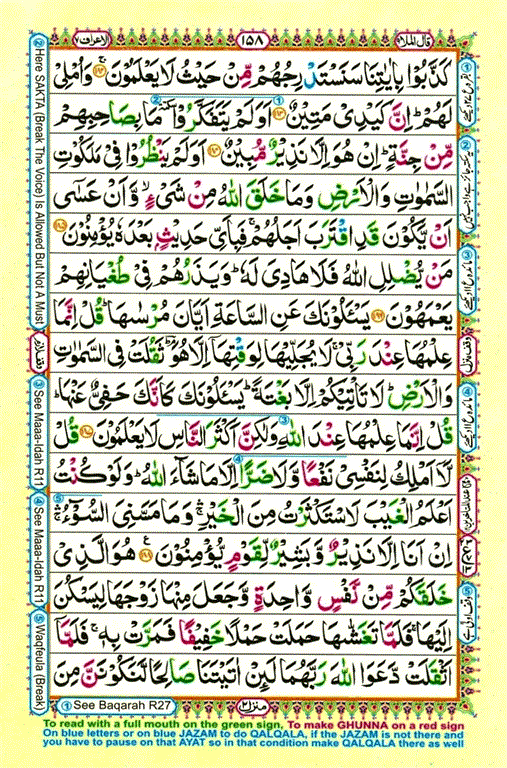 قال الملا ٩
١٥٨
الاعراف ٧
كَذَّبُوْا بِاٰيٰتِنَا سَنَسْتَدْرِجُهُمْ مِّنْ حَيْثُ لَا يَعْلَمُوْنَ ۚ وَاُمْلِىْ
لَهُمْ ؕ اِنَّ كَيْدِىْ مَتِيْنٌ اَوَلَمْ يَتَفَكَّرُوْا ٚ مَا بِصَاحِبِهِمْ
مِّنْ جِنَّةٍ ؕ اِنْ هُوَ اِلَّا نَذِيْرٌ مُّبِيْنٌ اَوَلَمْ يَنْظُرُوْا فِىْ مَلَكُوْتِ
السَّمٰوٰتِ وَالْاَرْضِ وَمَا خَلَقَ اللّٰهُ مِنْ شَىْءٍ ۙ وَّاَنْ عَسٰٓى
اَنْ يَّكُوْنَ قَدِ اقْتَرَبَ اَجَلُهُمْ ۚ فَبِاَىِّ حَدِيْثٍۭ بَعْدَهٗ يُؤْمِنُوْنَ
مَنْ يُّضْلِلِ اللّٰهُ فَلَا هَادِىَ لَهٗ ؕ وَيَذَرُهُمْ فِىْ طُغْيَانِهِمْ
يَعْمَهُوْنَ يَسْـَٔلُوْنَكَ عَنِ السَّاعَةِ اَيَّانَ مُرْسٰىهَا ؕ قُلْ اِنَّمَا
عِلْمُهَا عِنْدَ رَبِّىْ ۚ لَا يُجَلِّيْهَا لِوَقْتِهَاۤ اِلَّا هُوَ ؔۘ ثَقُلَتْ فِى السَّمٰوٰتِ
وَالْاَرْضِ ؕ لَا تَاْتِيْكُمْ اِلَّا بَغْتَةً ؕ يَسْـَٔلُوْنَكَ كَاَنَّكَ حَفِىٌّ عَنْهَا ؕ
قُلْ اِنَّمَا عِلْمُهَا عِنْدَ اللّٰهِ وَلٰكِنَّ اَكْثَرَ النَّاسِ لَا يَعْلَمُوْنَ قُلْ
لَّاۤ اَمْلِكُ لِنَفْسِىْ نَفْعًا وَّلَا ضَرًّا اِلَّا مَا شَآءَ اللّٰهُ ؕ وَلَوْ كُنْتُ
اَعْلَمُ الْغَيْبَ لَاسْتَكْثَرْتُ مِنَ الْخَيْرِ ۛۖۚ وَمَا مَسَّنِىَ السُّوْٓءُ ۛۚ
اِنْ اَنَا اِلَّا نَذِيْرٌ وَّبَشِيْرٌ لِّقَوْمٍ يُّؤْمِنُوْنَ هُوَ الَّذِىْ
خَلَقَكُمْ مِّنْ نَّفْسٍ وَّاحِدَةٍ وَّجَعَلَ مِنْهَا زَوْجَهَا لِيَسْكُنَ
اِلَيْهَا ۚ فَلَمَّا تَغَشّٰىهَا حَمَلَتْ حَمْلًا خَفِيْفًا فَمَرَّتْ بِهٖ ۚ فَلَمَّاۤ
اَثْقَلَتْ دَّعَوَا اللّٰهَ رَبَّهُمَا لَئِنْ اٰتَيْتَنَا صَالِحًا لَّنَكُوْنَنَّ مِنَ
② Here SAKTA (Break The Voice) Is Allowed But Not A Must
③ See Maaa-Idah R11
④ See Maaa-Idah R11
⑤ Waqfeula (Break)
① See Baqarah R27
منزل ٢
To read with a full mouth on the green sign. To make GHUNNA on a red sign
On blue letters or on blue JAZAM to do QALQALA, if the JAZAM is not there and
you have to pause on that AYAT so in that condition make QALQALA there as well